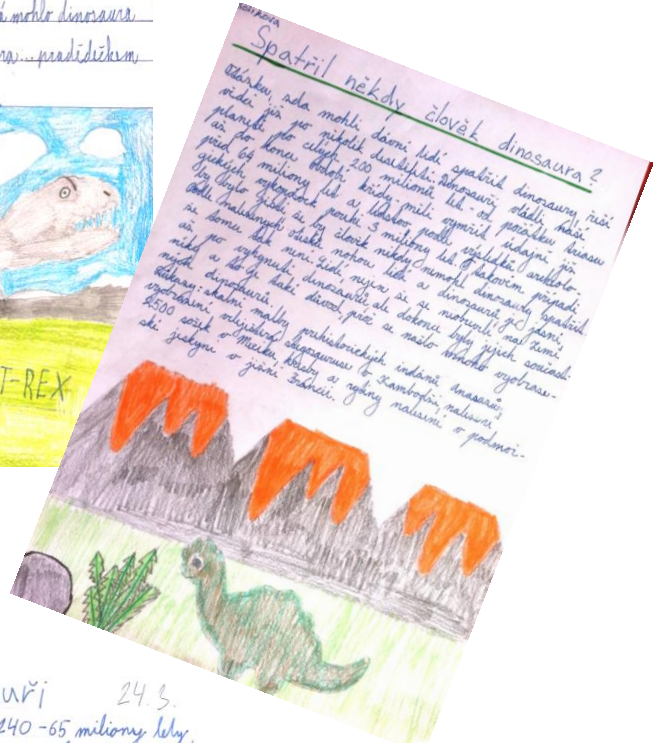 á mohlo dinosaura
ra...pradědečkem
T-REX
Spatřil někdy člověk dinosaura?
Otázku, zda mohli dávní lidé spatřit dinosaury, řeší
vědci již po několik desetiletí. Dinosauři vládli naší
planetě po celých 200 milionů let - od počátku triasu
až do konce období křídy, měli vymřít údajně již
před 65 miliony let a lidstvo podle výsledků archeolo-
gických vykopávek pouhé 3 miliony let. V takovém případě
by bylo jisté, že by člověk nikdy nemohl dinosaury spatřit.
Podle nalezených otisků nohou lidí a dinosaurů je jasné,
že tomu tak není. Lidé nejen že se neobjevili na Zemi
až po vyhynutí dinosaurů, ale dokonce byly jejich součas-
níky a to je také důvod, proč se našlo mnoho vyobraze-
ných dinosaurů.
Důkazy: skalní malby prehistorických indiánů Anasazů,
vyobrazení Stegosaurusa v Kambodži, nalezení
2500 sošek v Mexiku, kresby a rytiny nalezené v podmoř-
ské jeskyni v jižní Francii.
uři 24.3.
240-65 miliony lety